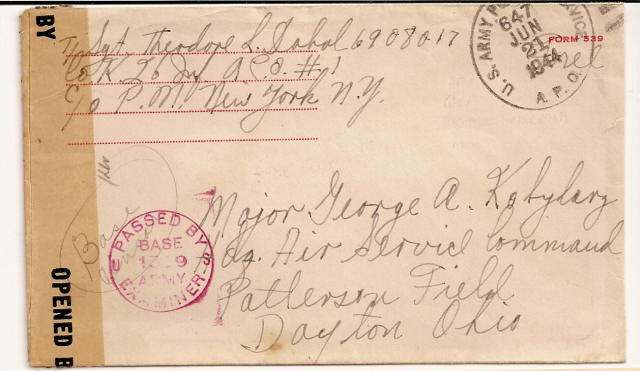 BY
OPENED B
T/Sgt. Theodore L. Dobol 6908017
Co K 26 Inf A.P.O. #1
c/o P.M. New York N.Y.
U.S. ARMY P
VICE
647
JUN
1944
A.P.O.
FORM 539
Free
Base
PASSED BY
BASE
ARMY
EXAMINER
Major George A.
Hq. Air Service Command
Patterson Field
Dayton Ohio